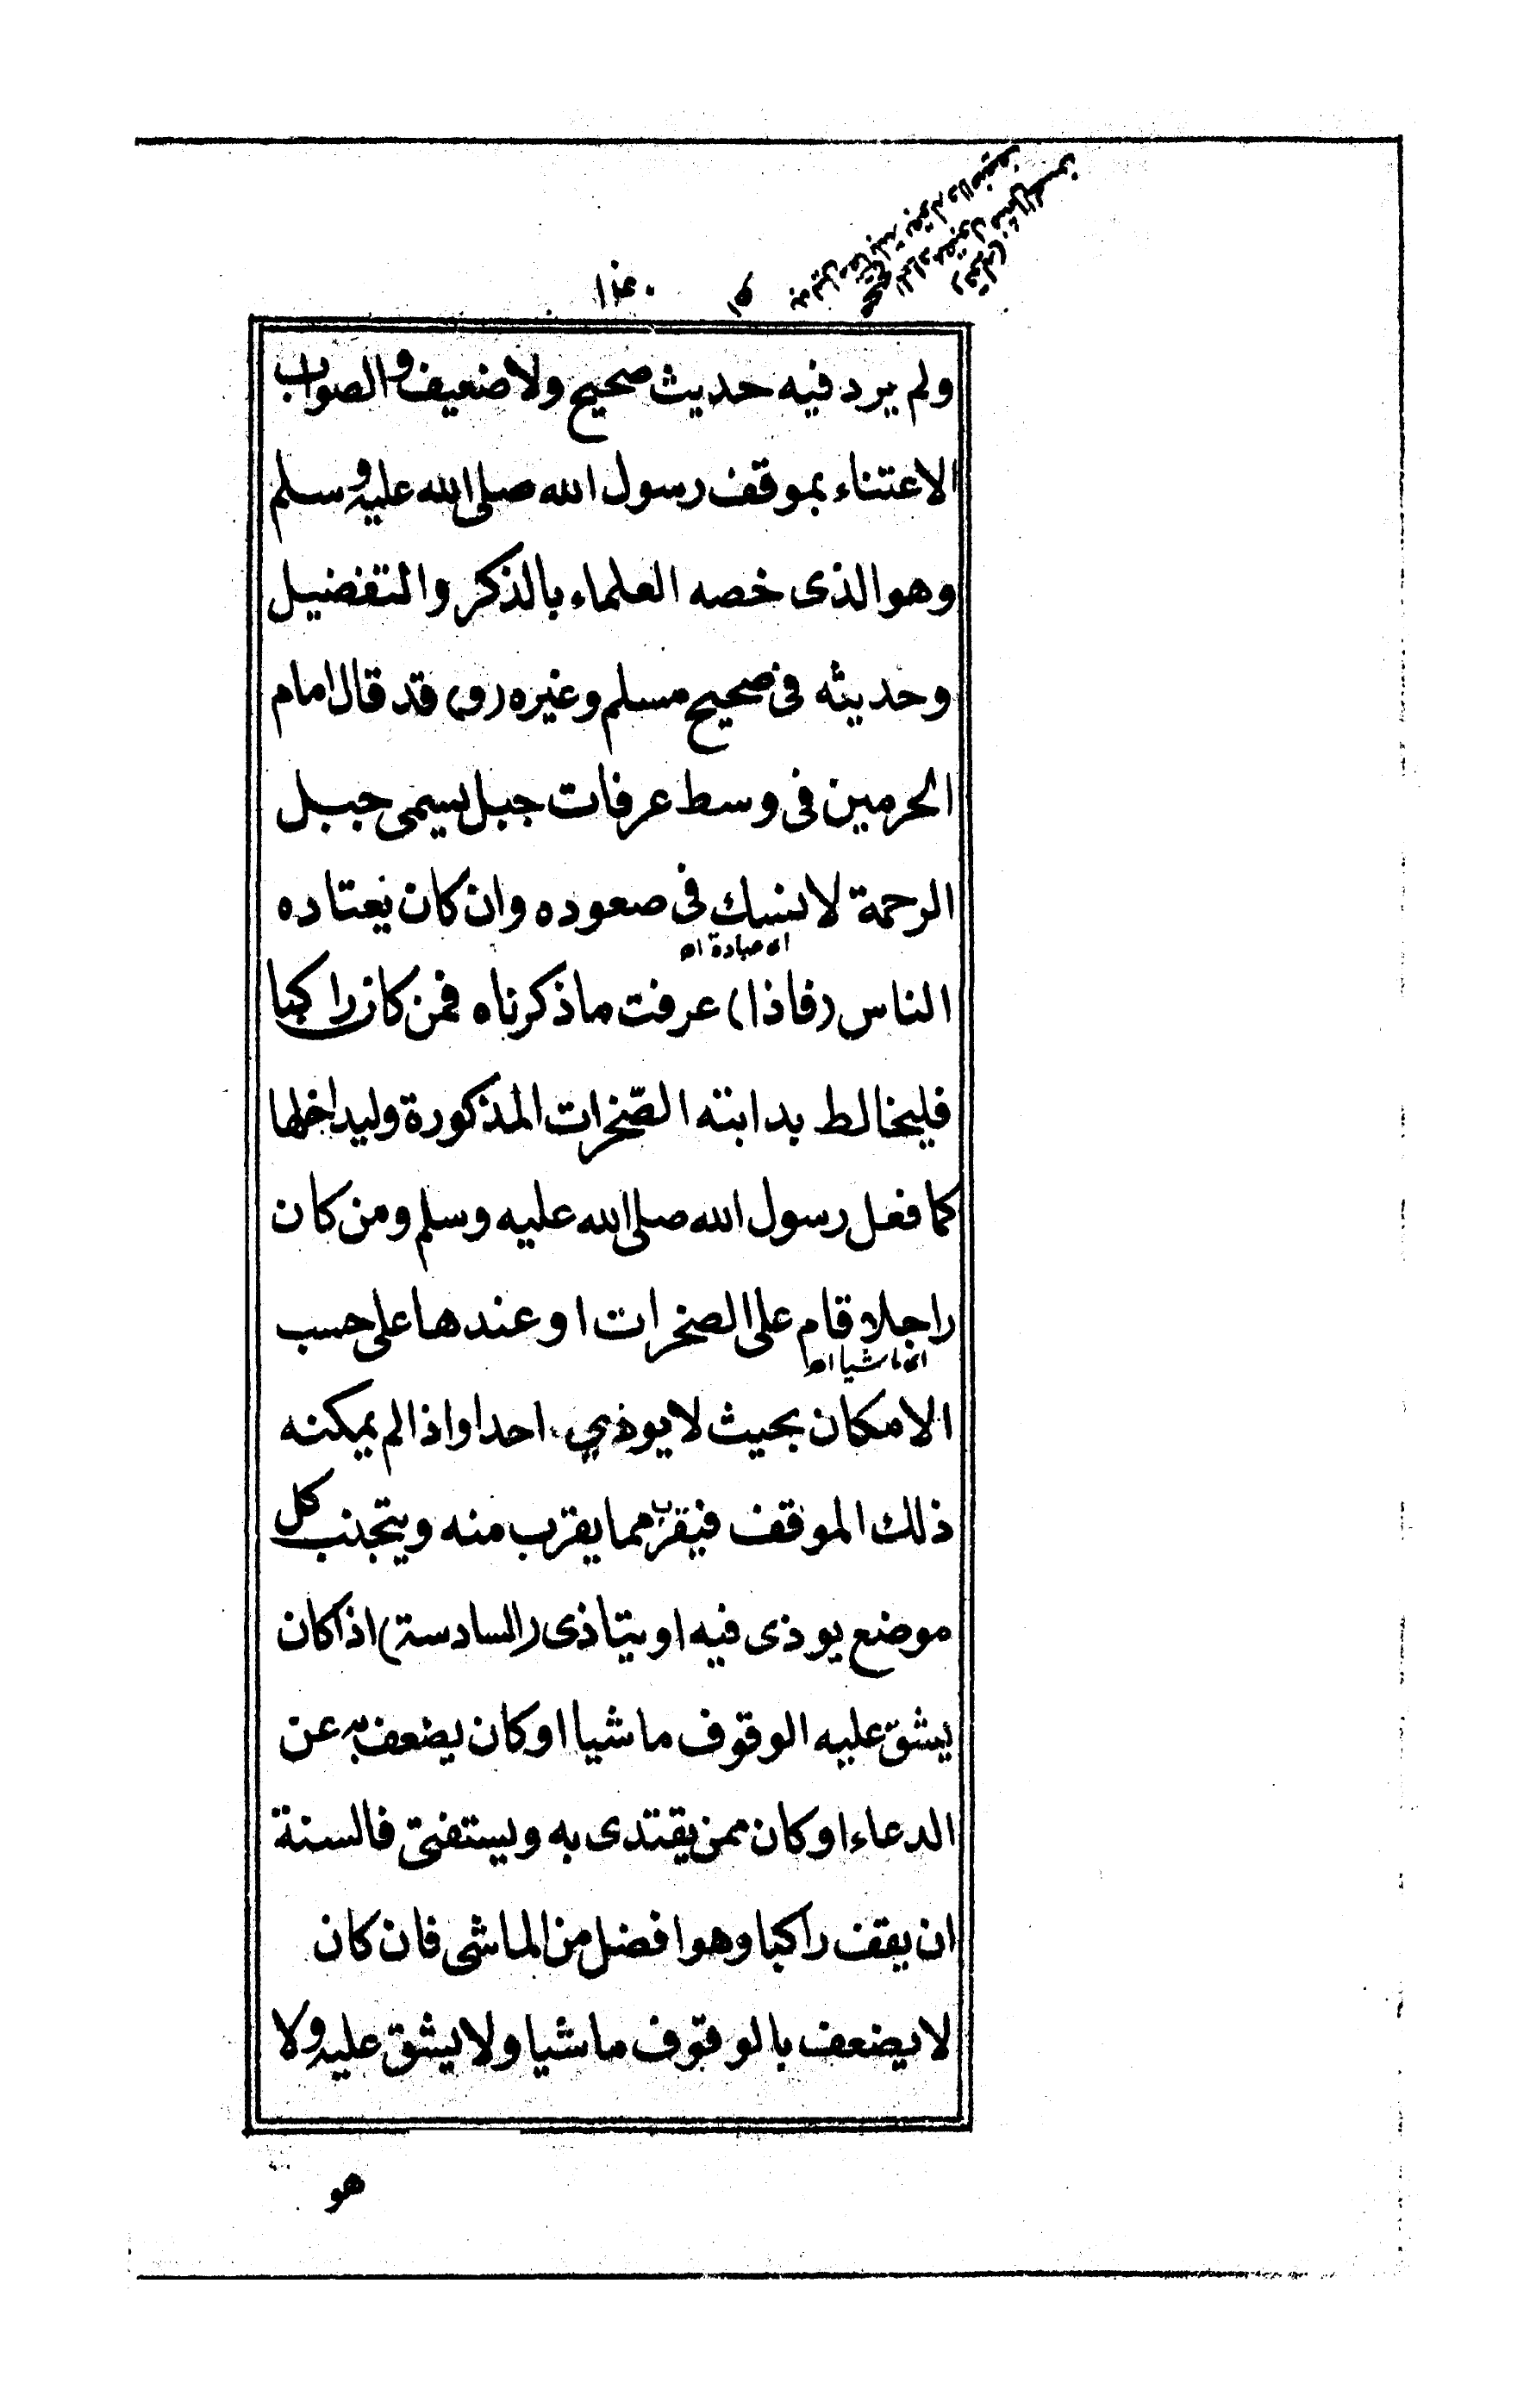 ولم يرد فيه حديث صحيح ولا ضعيف والصواب
الاعتناء بموقف رسول الله صلى الله عليه وسلم
وهو الذى خصه العلماء بالذكر والتفضيل
وحديثه فى صحيح مسلم وغيره (و) قد قال امام
الحرمين فى وسط عرفات جبل يسمى جبل
الرحمة لانسك فى صعوده وان كان يعتاده
اى عبادة اه
الناس (فاذا) عرفت ماذكرناه فمن كان راكبا
فليخالط بدابته الصّخرات المذكورة وليداخلها
كما فعل رسول الله صلى الله عليه وسلم ومن كان
راجلا قام على الصخرات او عندها على حسب
اى ماشيا اه
الامكان بحيث لا يوذي احدا واذا لم يمكنه
ذلك الموقف فيقرب مما يقرب منه ويتجنب كل
موضع يوذى فيه او يتاذى (السادسة) اذا كان
يشق عليه الوقوف ماشيا او كان يضعف به عن
الدعاء او كان ممن يقتدى به ويستفتى فالسنة
ان يقف راكبا وهو افضل من الماشى فان كان
لا يضعف بالوقوف ماشيا ولا يشق عليه ولا
هو